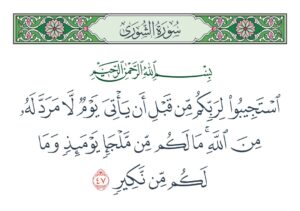 سُورَةُ الشُّورَىٰ
بِسْمِ اللَّهِ الرَّحْمَٰنِ الرَّحِيمِ
ٱسْتَجِيبُوا۟ لِرَبِّكُم مِّن قَبْلِ أَن يَأْتِىَ يَوْمٌ لَّا مَرَدَّ لَهُۥ
مِنَ ٱللَّهِ ۚ مَا لَكُم مِّن مَّلْجَإٍ يَوْمَئِذٍ وَمَا
لَكُم مِّن نَّكِيرٍ ٤٧